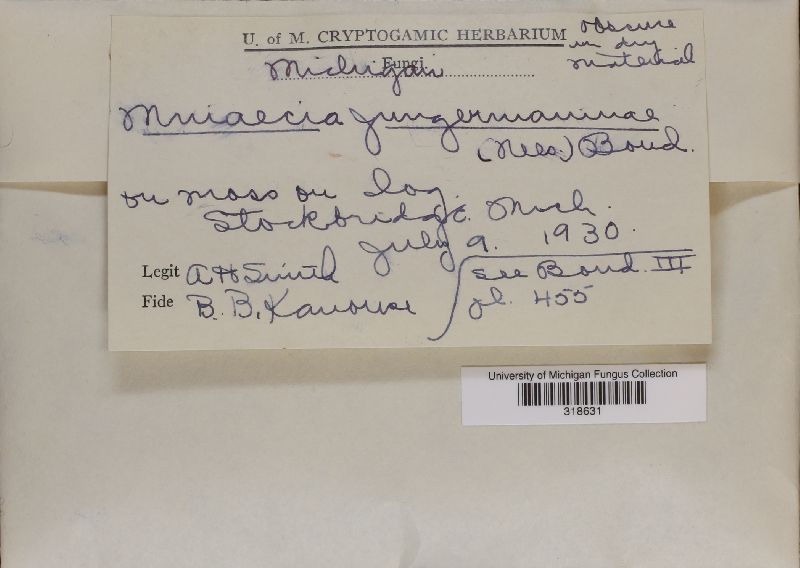 U. of M. CRYPTOGAMIC HERBARIUM
obscure
in dry
material
Fungi
Michigan
Mniaecia jungermaninae
(Nees.) Boud.
on moss on log.
Stockbridge. Mich.
July 9. 1930.
Legit A H Smith
Fide B. B. Kanouse
see Boud. III
pl. 455
University of Michigan Fungus Collection
318631